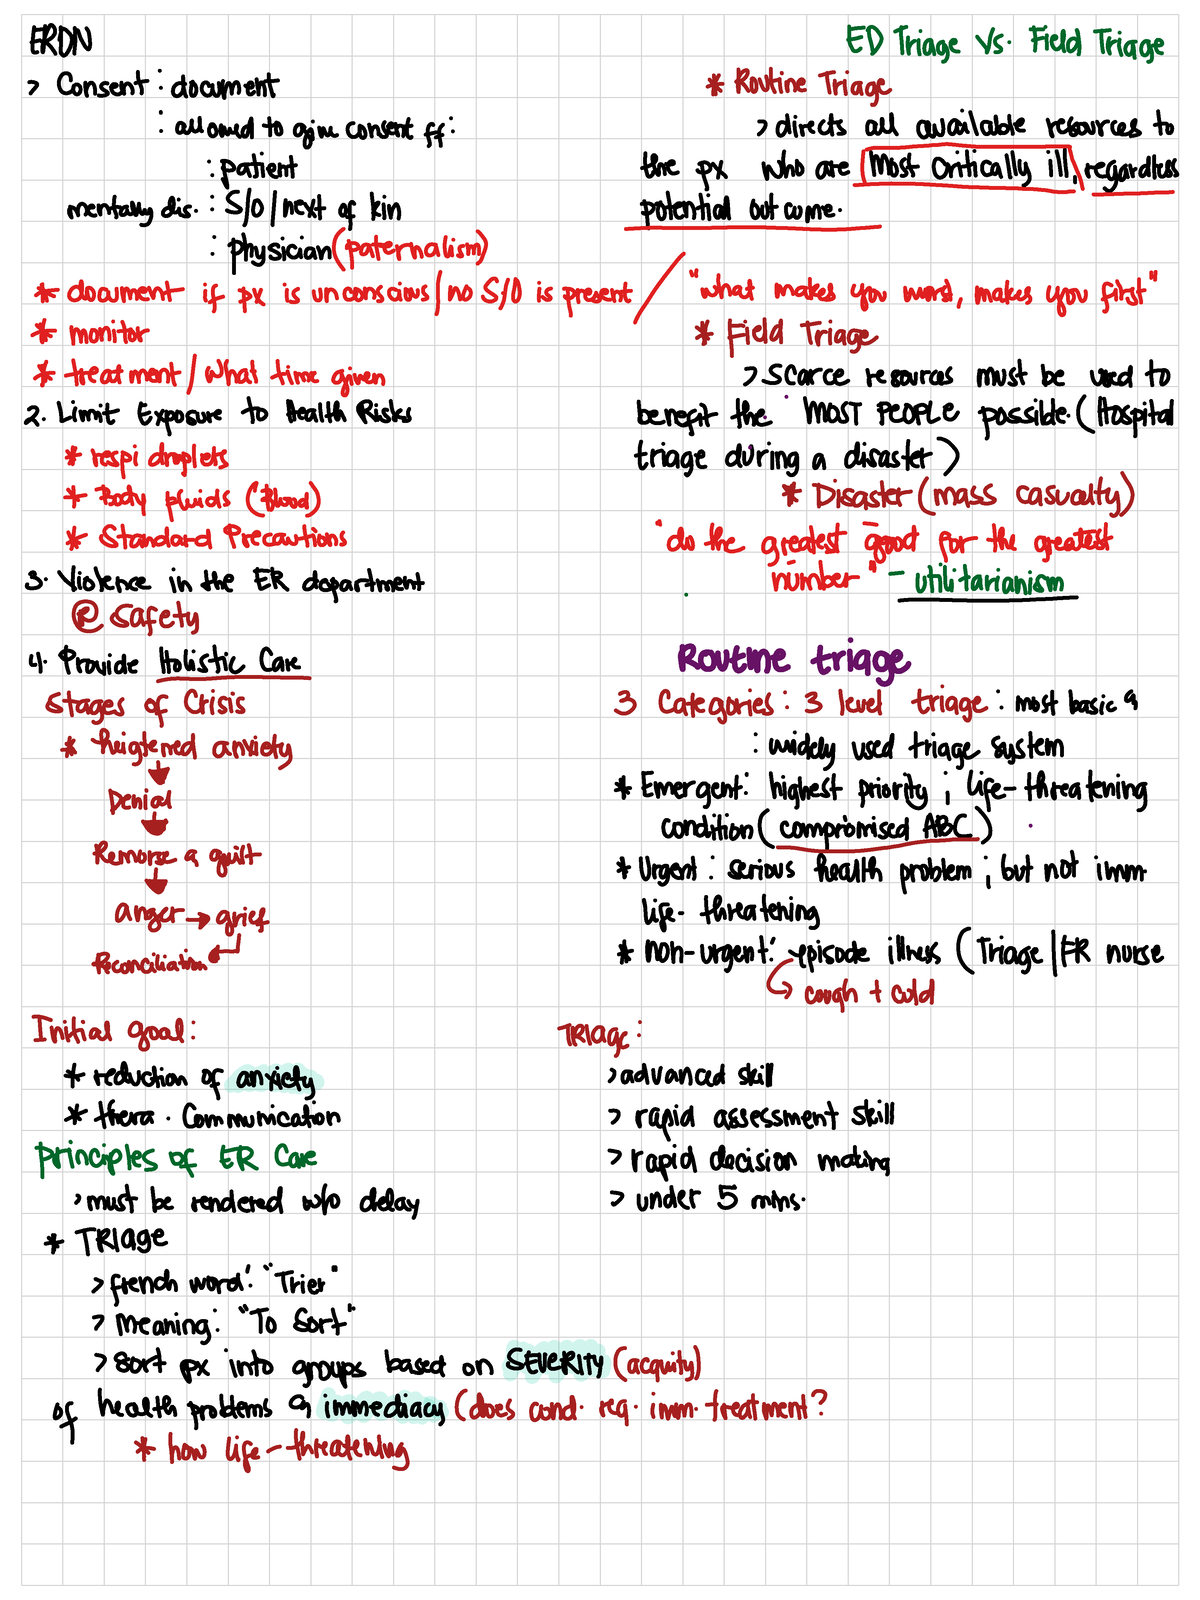 ERDN
> Consent : document
: allowed to give consent ff:
: patient
mentally dis. : S/O / next of kin
: physician (paternalism)
* document if px is unconscious / no S/O is present
* monitor
* treatment / what time given
2. Limit Exposure to Health Risks
* respi droplets
* Body fluids (Blood)
* Standard Precautions
3. Violence in the ER department
@ safety
4. Provide Holistic Care
Stages of Crisis
* heigtened anxiety
Denial
Remorse & guilt
anger → grief
Reconciliation
Initial goal:
* reduction of anxiety
* thera. Communication
principles of ER Care
> must be rendered w/o delay
* TRIage
> french word: "Trier"
> Meaning: "To Sort"
> Sort px into groups based on SEVERITY (acquity)
of health problems & immediacy (does cond. req. imm. treatment?
* how life-threatening
ED Triage Vs. Field Triage
* Routine Triage
> directs all available resources to
the px who are Most Critically ill, regardless
potential outcome.
"what makes you worst, makes you first"
* Field Triage
> Scarce resources must be used to
benefit the MOST PEOPLE possible. (Hospital
triage during a disaster)
* Disaster (mass casualty)
"do the greatest good for the greatest
number" - utilitarianism
Routine triage
3 Categories: 3 level triage : most basic &
: widely used triage system
* Emergent: highest priority ; life-threatening
condition (compromised ABC)
* Urgent : serious health problem ; but not imm
life-threatening
* non-urgent: episode illness (Triage | ER nurse
cough + cold
TRIage:
> advanced skill
> rapid assessment skill
> rapid decision making
> under 5 mins.